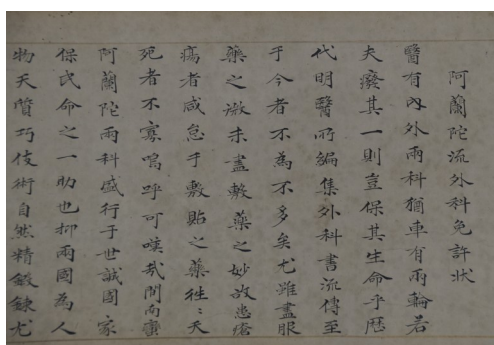 阿蘭陀流外科免許状
醫有內外兩科猶車有兩輪若
夫癈其一則豈保其生命乎歴
代明醫所編集外科書流傳至
于今者不為不多矣尤雖盡服
藥之漱未盡敷藥之妙故患瘡
瘍者咸怠于敷貼之藥徃〻夭
死者不寡嗚呼可嘆哉間向
阿蘭陀兩科盛行于世誠國家
保氏命之一助也抑兩國為人
物天質巧伎術自然精鍛錬尤